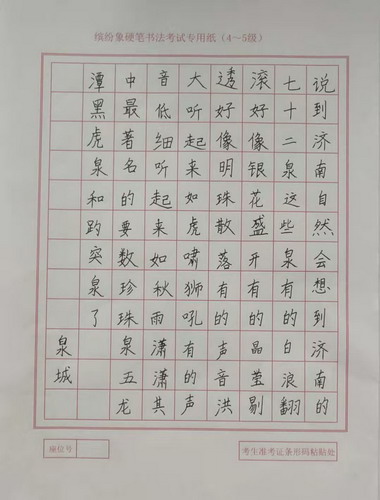 缤纷象硬笔书法考试专用纸（4～5级）
说到济南自然会想到济南的
七十二泉这些泉有的白浪翻
滚好像银花盛开有的晶莹剔
透好像明珠散落有的声音洪
大听起来如虎啸狮吼有的声
音低细听起来如秋雨潇潇其
中最著名的要数珍珠泉五龙
潭黑虎泉和趵突泉了
泉城
座位号
考生准考证条形码粘贴处